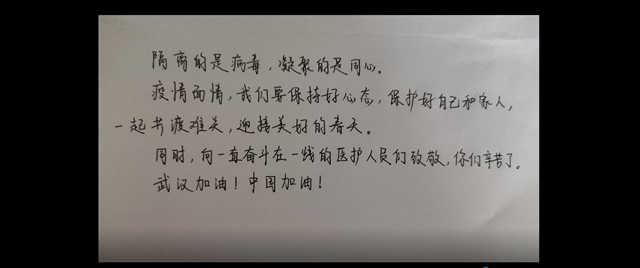 隔离的是病毒，凝聚的是同心。
疫情面情，我们要保持好心态，保护好自己和家人，
一起共渡难关，迎接美好的春天。
同时，向一直奋斗在一线的医护人员们致敬，你们辛苦了。
武汉加油！中国加油！